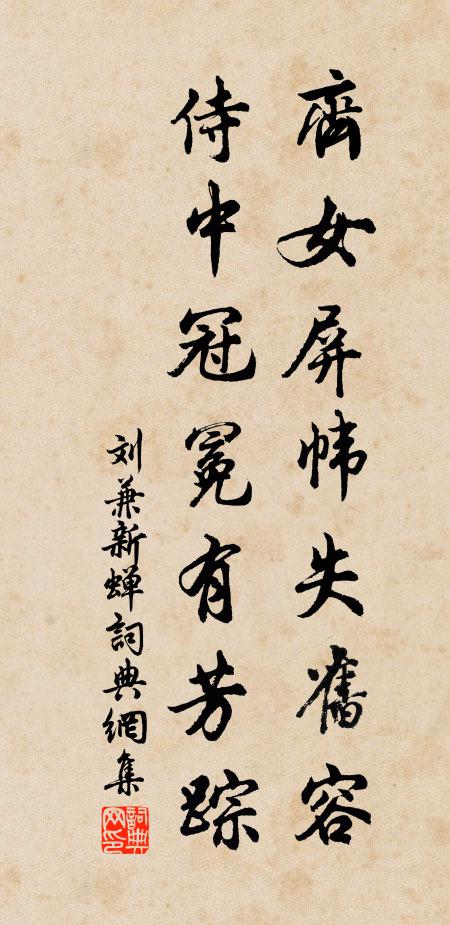 齊女屏幃失舊容
侍中冠冕有芳踪
刘兼新蝉詞典網集
詞典網印